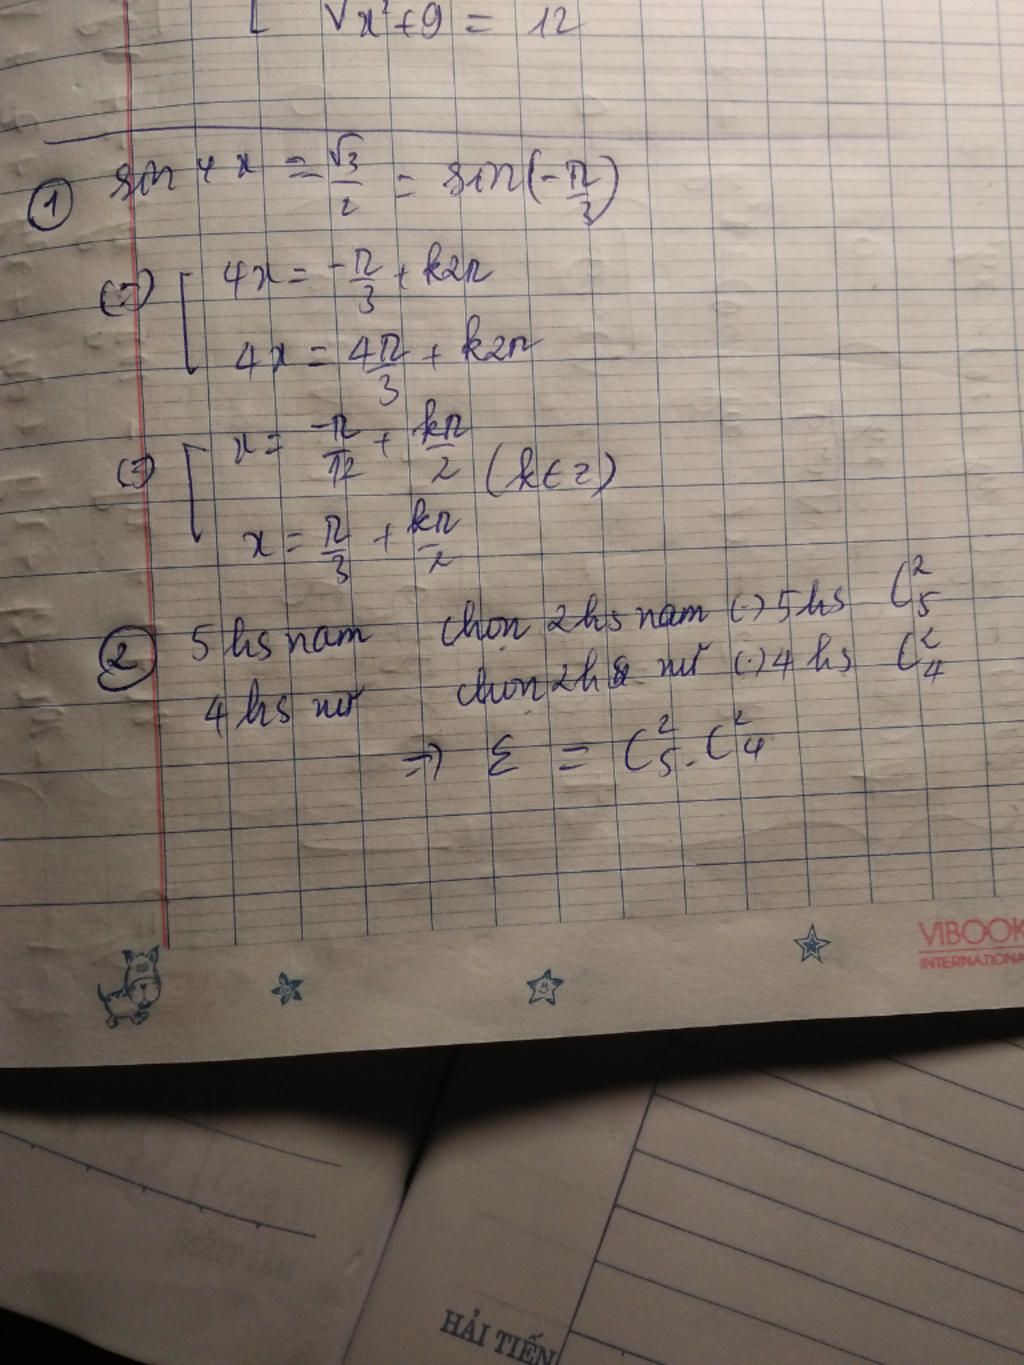 √x²+9 = 12
① sin 4x = √3/2 = sin(-π/3)
(=) [ 4x = -π/3 + k2π
4x = 4π/3 + k2π
(=) [ x = -π/12 + kπ/2 (k∈Z)
x = π/3 + kπ/2
② 5 hs nam chọn 2 hs nam (·) 5 hs C²₅
4 hs nữ chọn 2 hs nữ (·) 4 hs C²₄
=> Σ = C²₅ . C²₄
VIBOOK
INTERNATIONA
HẢI TIẾN